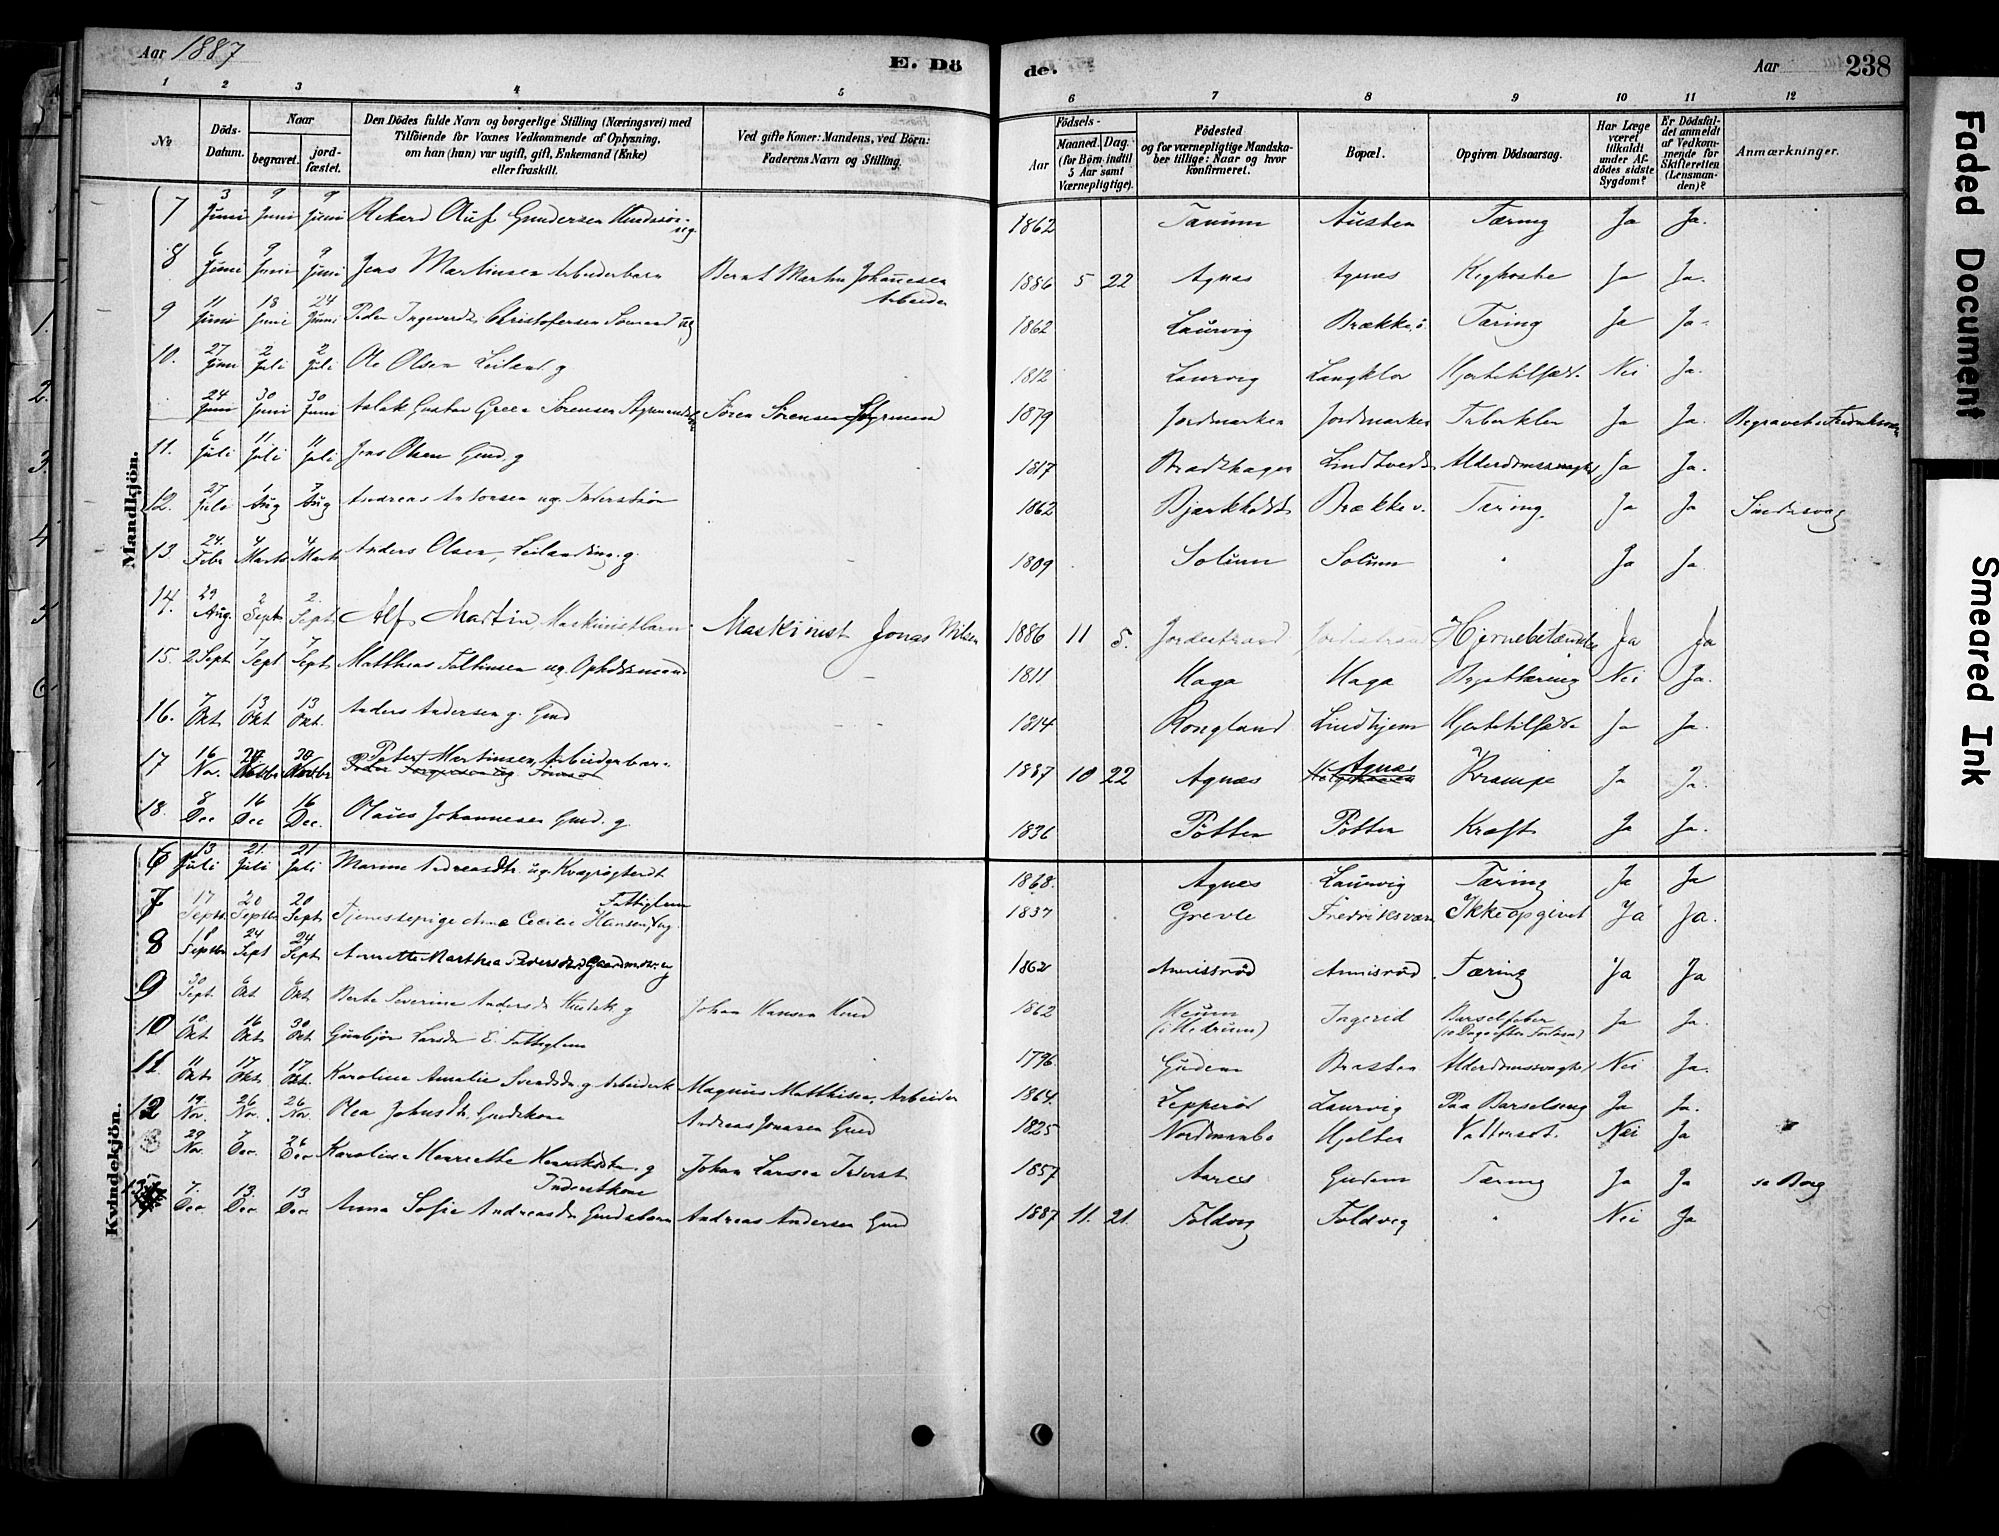 Aar 1887
E. Dö
de.
Aar
238
1 2 3 4 5 6 7 8 9 10 11 12
No
Döds-Datum.
Naar
begravet.
jord-fæstet.
Den Dödes fulde Navn og borgerlige Stilling (Næringsvei) med
Tilföiende for Voxnes Vedkommende af Oplysning,
om han (hun) var ugift, gift, Enkemand (Enke)
eller fraskilt.
Ved gifte Koner: Mandens, ved Börn:
Faderens Navn og Stilling.
Födsels-
Aar
Maaned. Dag.
(for Börn indtil
5 Aar samt
Værnepligtige).
Födested
og for værnepligtige Mandska-
ber tillige: Naar og hvor
konfirmeret.
Bopæl.
Opgiven Dödsaarsag.
Har Læge
været
tilkaldt
under Af-
dödes sidste
Sygdom?
Er Dödsfal-
det anmeldt
af Vedkom-
mende for
Skifteretten
(Lensman-
den)?
Anmærkninger.
Mandkjön.
7 3 Juni 9 Juni 9 Juni Rikard Oluf Gundersen 1862 Tanum Austen Tæring Ja Ja.
8 6 Juni 9 Juni 9 Juni Jens Martinsen Arbeiderbarn Bernt Martin Johannesen Arbeider 1886 5 22 Agnæs Agnæs Kighoste Ja Ja.
9 11 Juni 18 Juni 24 Juni Peder Christofersen Sömand ug 1862 Laurvig Brække Tæring Ja Ja.
10. 27 Juni 2 Juli 2 Juli Ole Olsen g 1812 Laurvig Nei Ja.
24 Juni 30 Juni 30 Juni Aslak Gustav Green Sörensen Sören Sörensen Styrmand 1879 Jordmarken Jordmarken Tuberkler Ja Ja. Begravet i
11. 6 Juli 11 Juli 11 Juli Jens Olsen Gmd. g 1817 Ja Ja.
12. 27 Juli 1 Aug 7 Aug Andreas Antonsen ug. 1862 Brække Tæring. Ja Ja
13. 24. Febr 4 Marts 4 Marts Anders Olsen, g. 1809 Solum Solum " Ja Ja
14. 29 Aug. 2 Sept 2. Sept Alf Martin Maskinistbarn Maskinist Jonas Nilsen 1886 11 5. Jordestrand Jordestrand Ja Ja
15. 2 Sept 7 Sept 7 Sept. Matthias ug Opholdsmand 1811 Haga Haga Brysttæring Nei Ja.
16. 7 Okt 13 Okt 13 Okt. Anders Andersen g. Gmd 1814 Rongland Lindhjem Ja Ja.
17 16 Nov. Peter Martinsen, Arbeiderbarn 1887 10 22 Agnæs Agnæs Krampe Ja Ja.
18. 8 Dec 16 Dec 16 Dec. Olaus Johannesen Gmd. g. 1836 Pötten Pötten Kræft Ja Ja.
Kvindekjön.
6 13 Juli 21. Juli 21 Juli Marine Andreasdtr. ug. 1868. Agnes Laurvig Tæring Ja Ja
7 17 Septb 20 Septbr 20 Sept Tjenestepige Anne Cecilie Hansen, ug. Fattiglem 1837 Grevle Fredriksværn Ikke opgivet Ja Ja.
8 18 Septbr 24 Sept 24 Sept Annette Marthea Pedersdtr. ug 1862 Annisröd Annisröd. Tæring Ja Ja
9 30 Sept. 6 Okt 6 Okt. Berte Severine Andersdtr g Johan Hansen 1862 (i Hedrum) Barselfeber Ja Ja.
10 10 Okt 16 Okt 30 Okt Gunbjör Larsdtr E. Fattiglem 1796 Gudem Brasten Alderdomssvaghed Nei Ja.
11 11 Okt 17 Okt 17 Okt. Karoline Amalie Svendsdtr. g Arbeiderk Magnus Matthisen, Arbeider 1864. Lepperöd Laurvig Paa Barselseng Ja Ja.
12 19. Nov. 26 Nov. 26 Nov. Olea Johnsdtr. Gmdskone Andreas Jonasen Gmd 1825 Nordmanbo Hjelten Vattersot. Nei Ja
29 Nov. 7 Dec. 26 Dec Karoline Henriette Henriksdtr. g Inderstkone Johan Larsen Inderst 1857 Aares Gudem Tæring Ja Ja se Borg
13 7. Dec 13. Dec. 13 Dec. Anna Sofie Andreasdtr Gmdsbarn Andreas Andersen Gmd 1887 11. 21. Foldvig Foldvig " Nei Ja
Faded Document
Smeared Ink